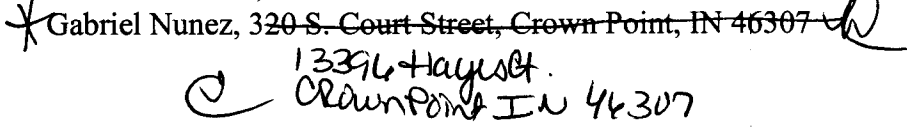 Gabriel Nunez, 320 S. Court Street, Crown Point, IN 46307
13394 Hayes Ct.
Crown Point IN 46307